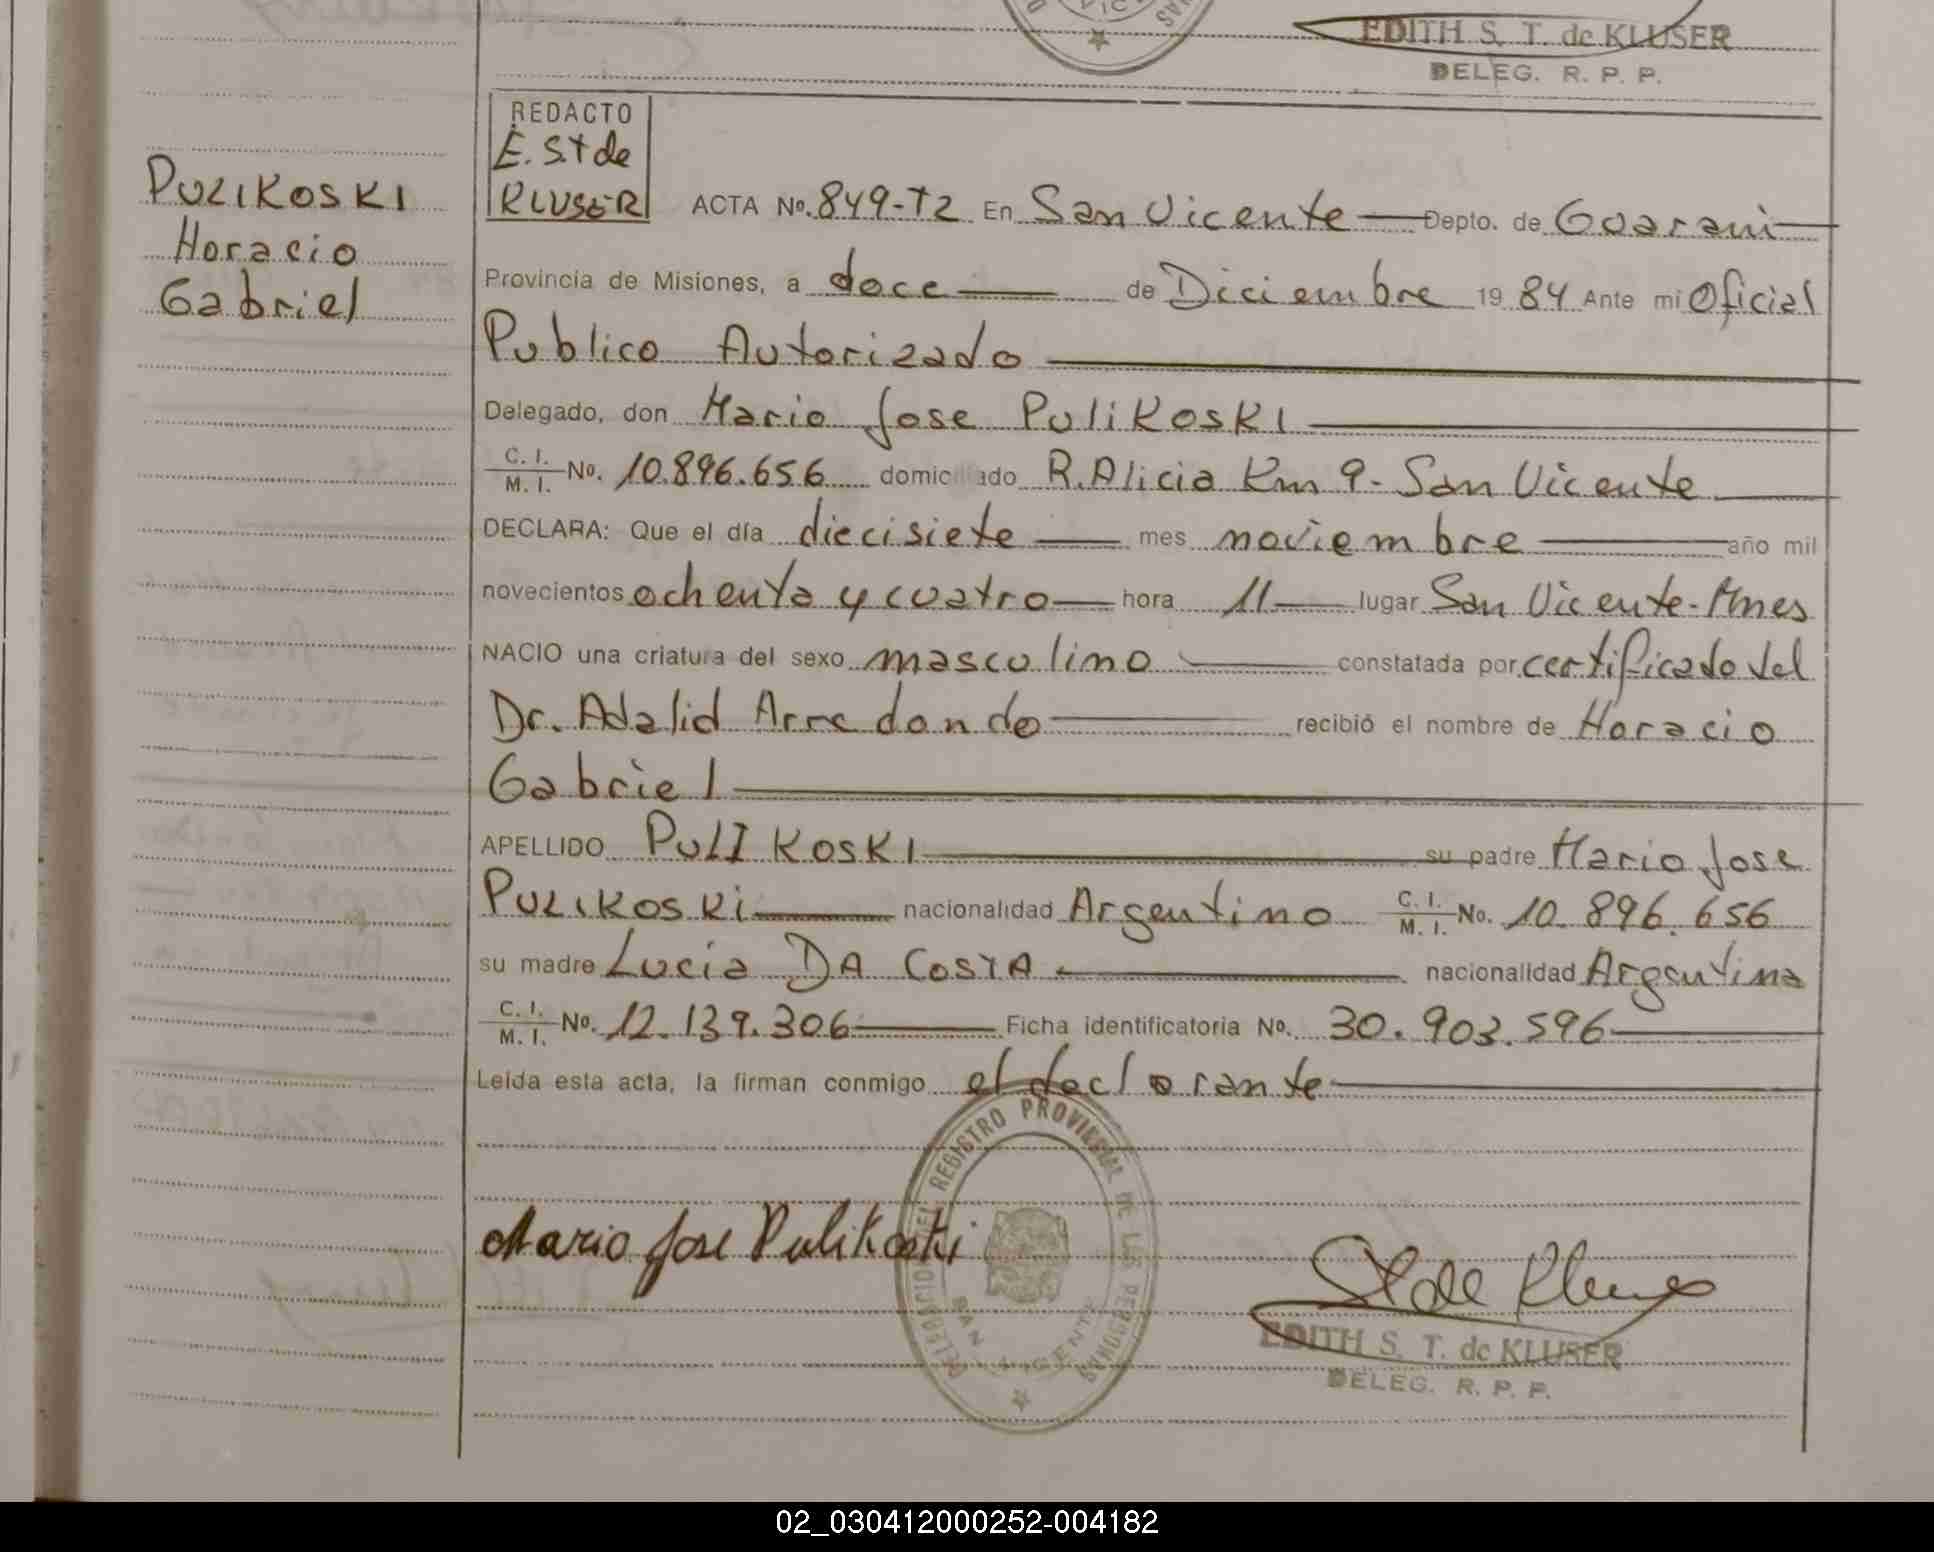 EDITH S. T. de KLUSER
DELEG. R. P. P.
REDACTO
E. S t de
KLUSER
PULIKOSKI
Horacio
Gabriel
ACTA No. 849-T2 En San Vicente Depto. de Guarani
Provincia de Misiones, a doce de Diciembre 1984 Ante mi Oficial
Publico Autorizado
Delegado, don Mario Jose PuliKosKI
C. I. / M. I. No. 10.896.656 domiciliado R. Alicia Km 9 - San Vicente
DECLARA: Que el día diecisiete mes noviembre año mil
novecientos ochenta y cuatro hora 11 lugar San Vicente - Mnes
NACIO una criatura del sexo masculino constatada por certificado del
Dr. Adalid Arredondo recibió el nombre de Horacio
Gabriel
APELLIDO PULIKOSKI su padre Mario Jose
PULIKOSKi nacionalidad Argentino C. I. / M. I. No. 10.896.656
su madre Lucia DA COSTA nacionalidad Argentina
C. I. / M. I. No. 12.139.306 Ficha identificatoria No. 30.903.596
Leída esta acta, la firman conmigo el declorante
DELEGACION DEL REGISTRO PROVINCIAL DE LAS PERSONAS
SAN VICENTE
Mario Jose Pulikoski
St de Kluser
EDITH S. T. de KLUSER
DELEG. R. P. P.
02_030412000252-004182